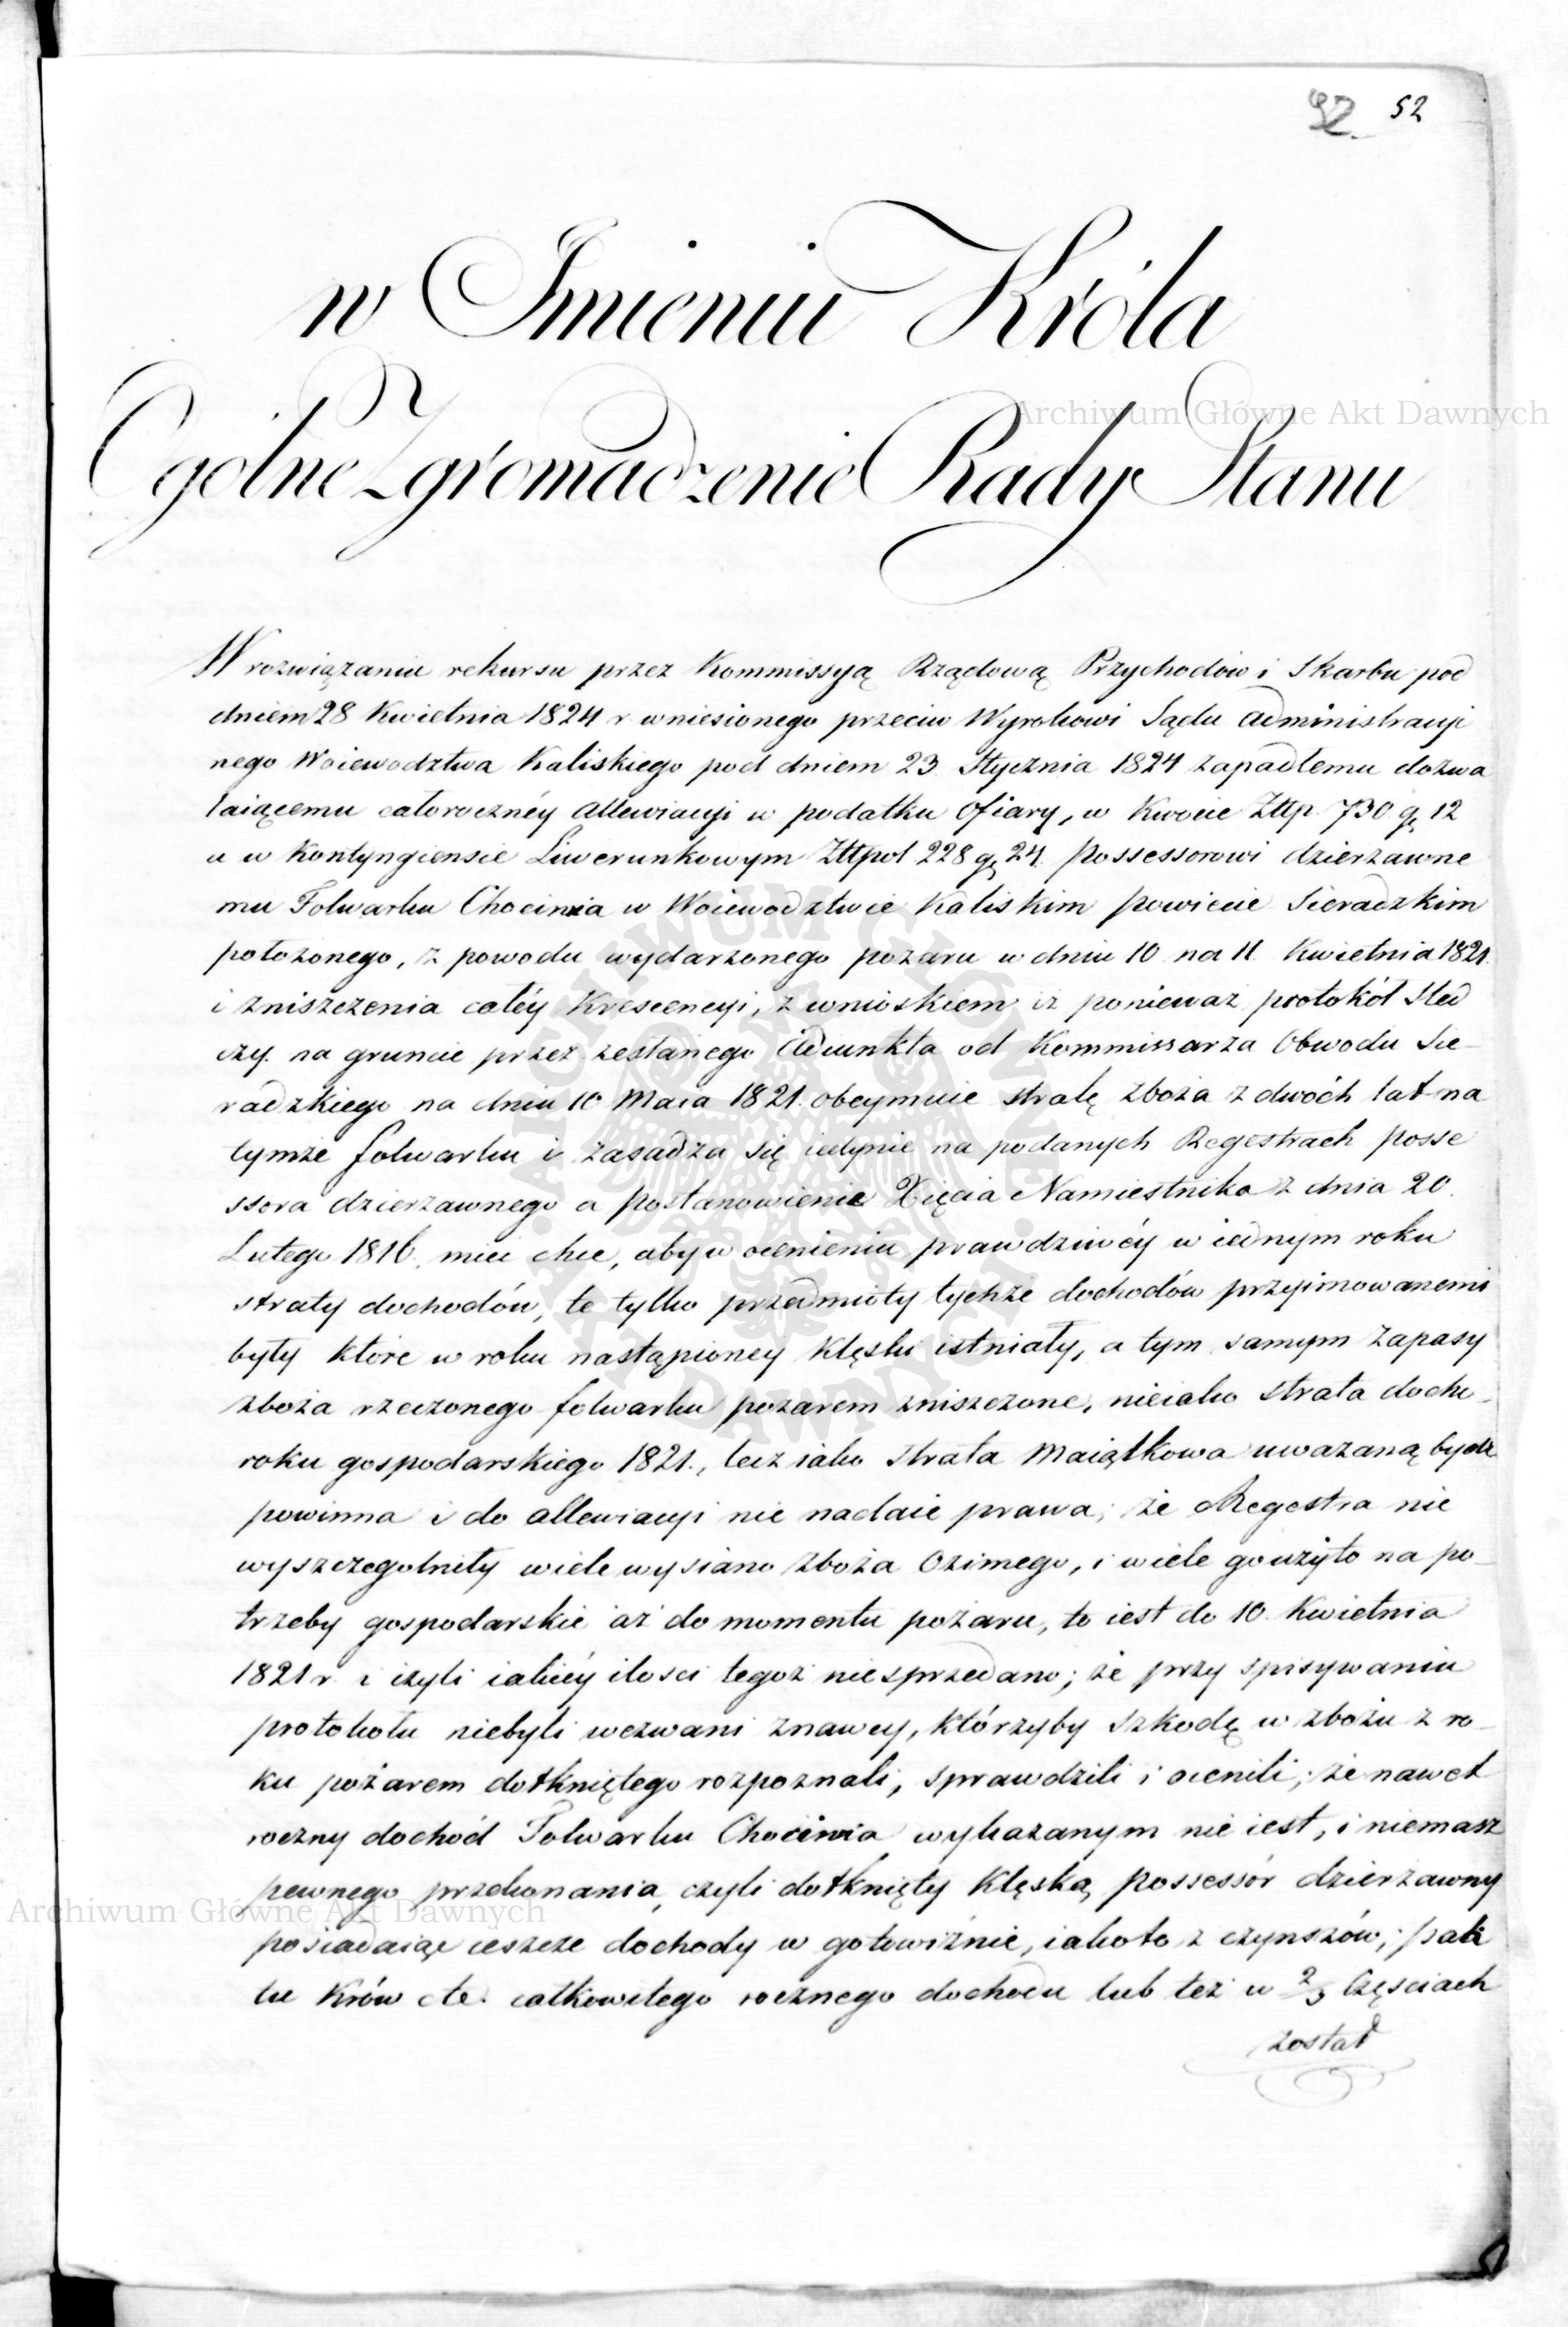 92 52
w Imieniu Króla
Ogólne Zgromadzenie Rady Stanu
W rozwiązaniu rekursu przez Kommissyą Rządową Przychodów i Skarbu pod
dniem 28 Kwietnia 1824 r wniesionego przeciw Wyrokowi Sądu administracyi
nego Woiewodztwa Kaliskiego pod dniem 23 Stycznia 1824 zapadłemu dozwa
laiącemu całorocznéy allewiacyi w podatku Ofiary, w Kwocie Złtp. 730 gr 12
a w Kontyngiensie Liwerunkowym Złtpol 228 gr 24. possessorowi dzierzawne
mu Folwarku Chocinia w Woiewodztwie Kaliskim powiecie Sieradzkim
położonego, z powodu wydarzonego pożaru w dniu 10 na 11 Kwietnia 1821.
i zniszczenia całéy Krescencyi, z wnioskiem iż ponieważ protokół Sled
czy na gruncie przez zesłanego Adiunkta od Kommissarza Obwodu Sie-
radzkiego na dniu 10 Maia 1821. obeymuie stratę zboża z dwóch lat na
tymże folwarku i zasadza się iedynie na podanych Regestrach posse
ssora dzierzawnego a postanowienie Xięcia Namiestnika z dnia 20.
Lutego 1816. mieć chce, aby w ocenieniu prawdziwéy w iednym roku
straty dochodów, te tylko przedmioty tychże dochodów przyimowanemi
były które w roku nastąpioney klęski istniały, a tym samym zapasy
zboża rzeczonego folwarku pożarem zniszczone, nieiako strata docho-
roku gospodarskiego 1821., lecz iako strata Maiątkowa uważaną bydź
powinna i do allewiacyi nie nadaie prawa; że Regestra nie
wyszczegolniły wiele wysiano zboża Ozimego, i wiele go użyto na po-
trzeby gospodarskie aż do momentu pożaru, to iest do 10. Kwietnia
1821 r. i czyli iakiéy ilosci tegoż nie sprzedano; że przy spisywaniu
protokołu niebyli wezwani znawcy, którzyby szkodę w zbożu z ro-
ku pożarem dotkniętego rozpoznali, sprawdzili i ocenili; że nawet
roczny dochód Folwarku Chocinia wykazanym nie iest, i niemasz
pewnego przekonania, czyli dotknięty Klęską possessór dzierżawny
posiadaiąc ieszcze dochody w gotowiźnie, iakoto z czynszów, pak
tu Krów etc. całkowitego rocznego dochodu lub też w 2/3 Częściach
został
Archiwum Główne Akt Dawnych
Archiwum Główne Akt Dawnych
ARCHIWUM GŁÓWNE AKT DAWNYCH